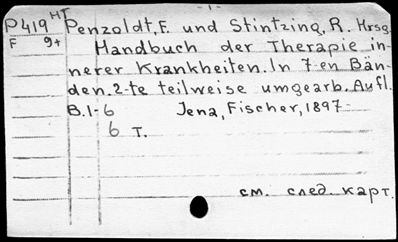 - 1 -
P419 HT Penzoldt, F. und Stintzing, R. Hrsg.
F 9+ Handbuch der Therapie in-
nerer Krankheiten. In 7-en Bän-
den. 2-te teilweise umgearb. Aufl.
B. 1-6 Jena, Fischer, 1897-
6 T.
см. след. карт.